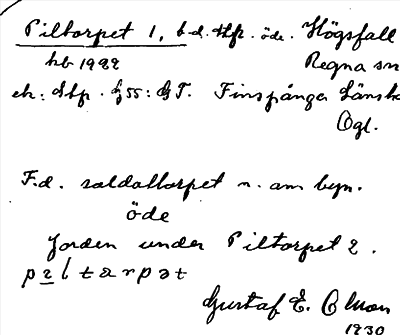 Piltorpet 1, b.d. tfr. öde. Högsfall
hb 1922 Regna sn
ek: Stp. G55: GT. Finspånga länsh
Ögl.
F.d. soldattorpet n. om byn.
öde
Jorden under Piltorpet 2.
Gustaf E. Olson
1930